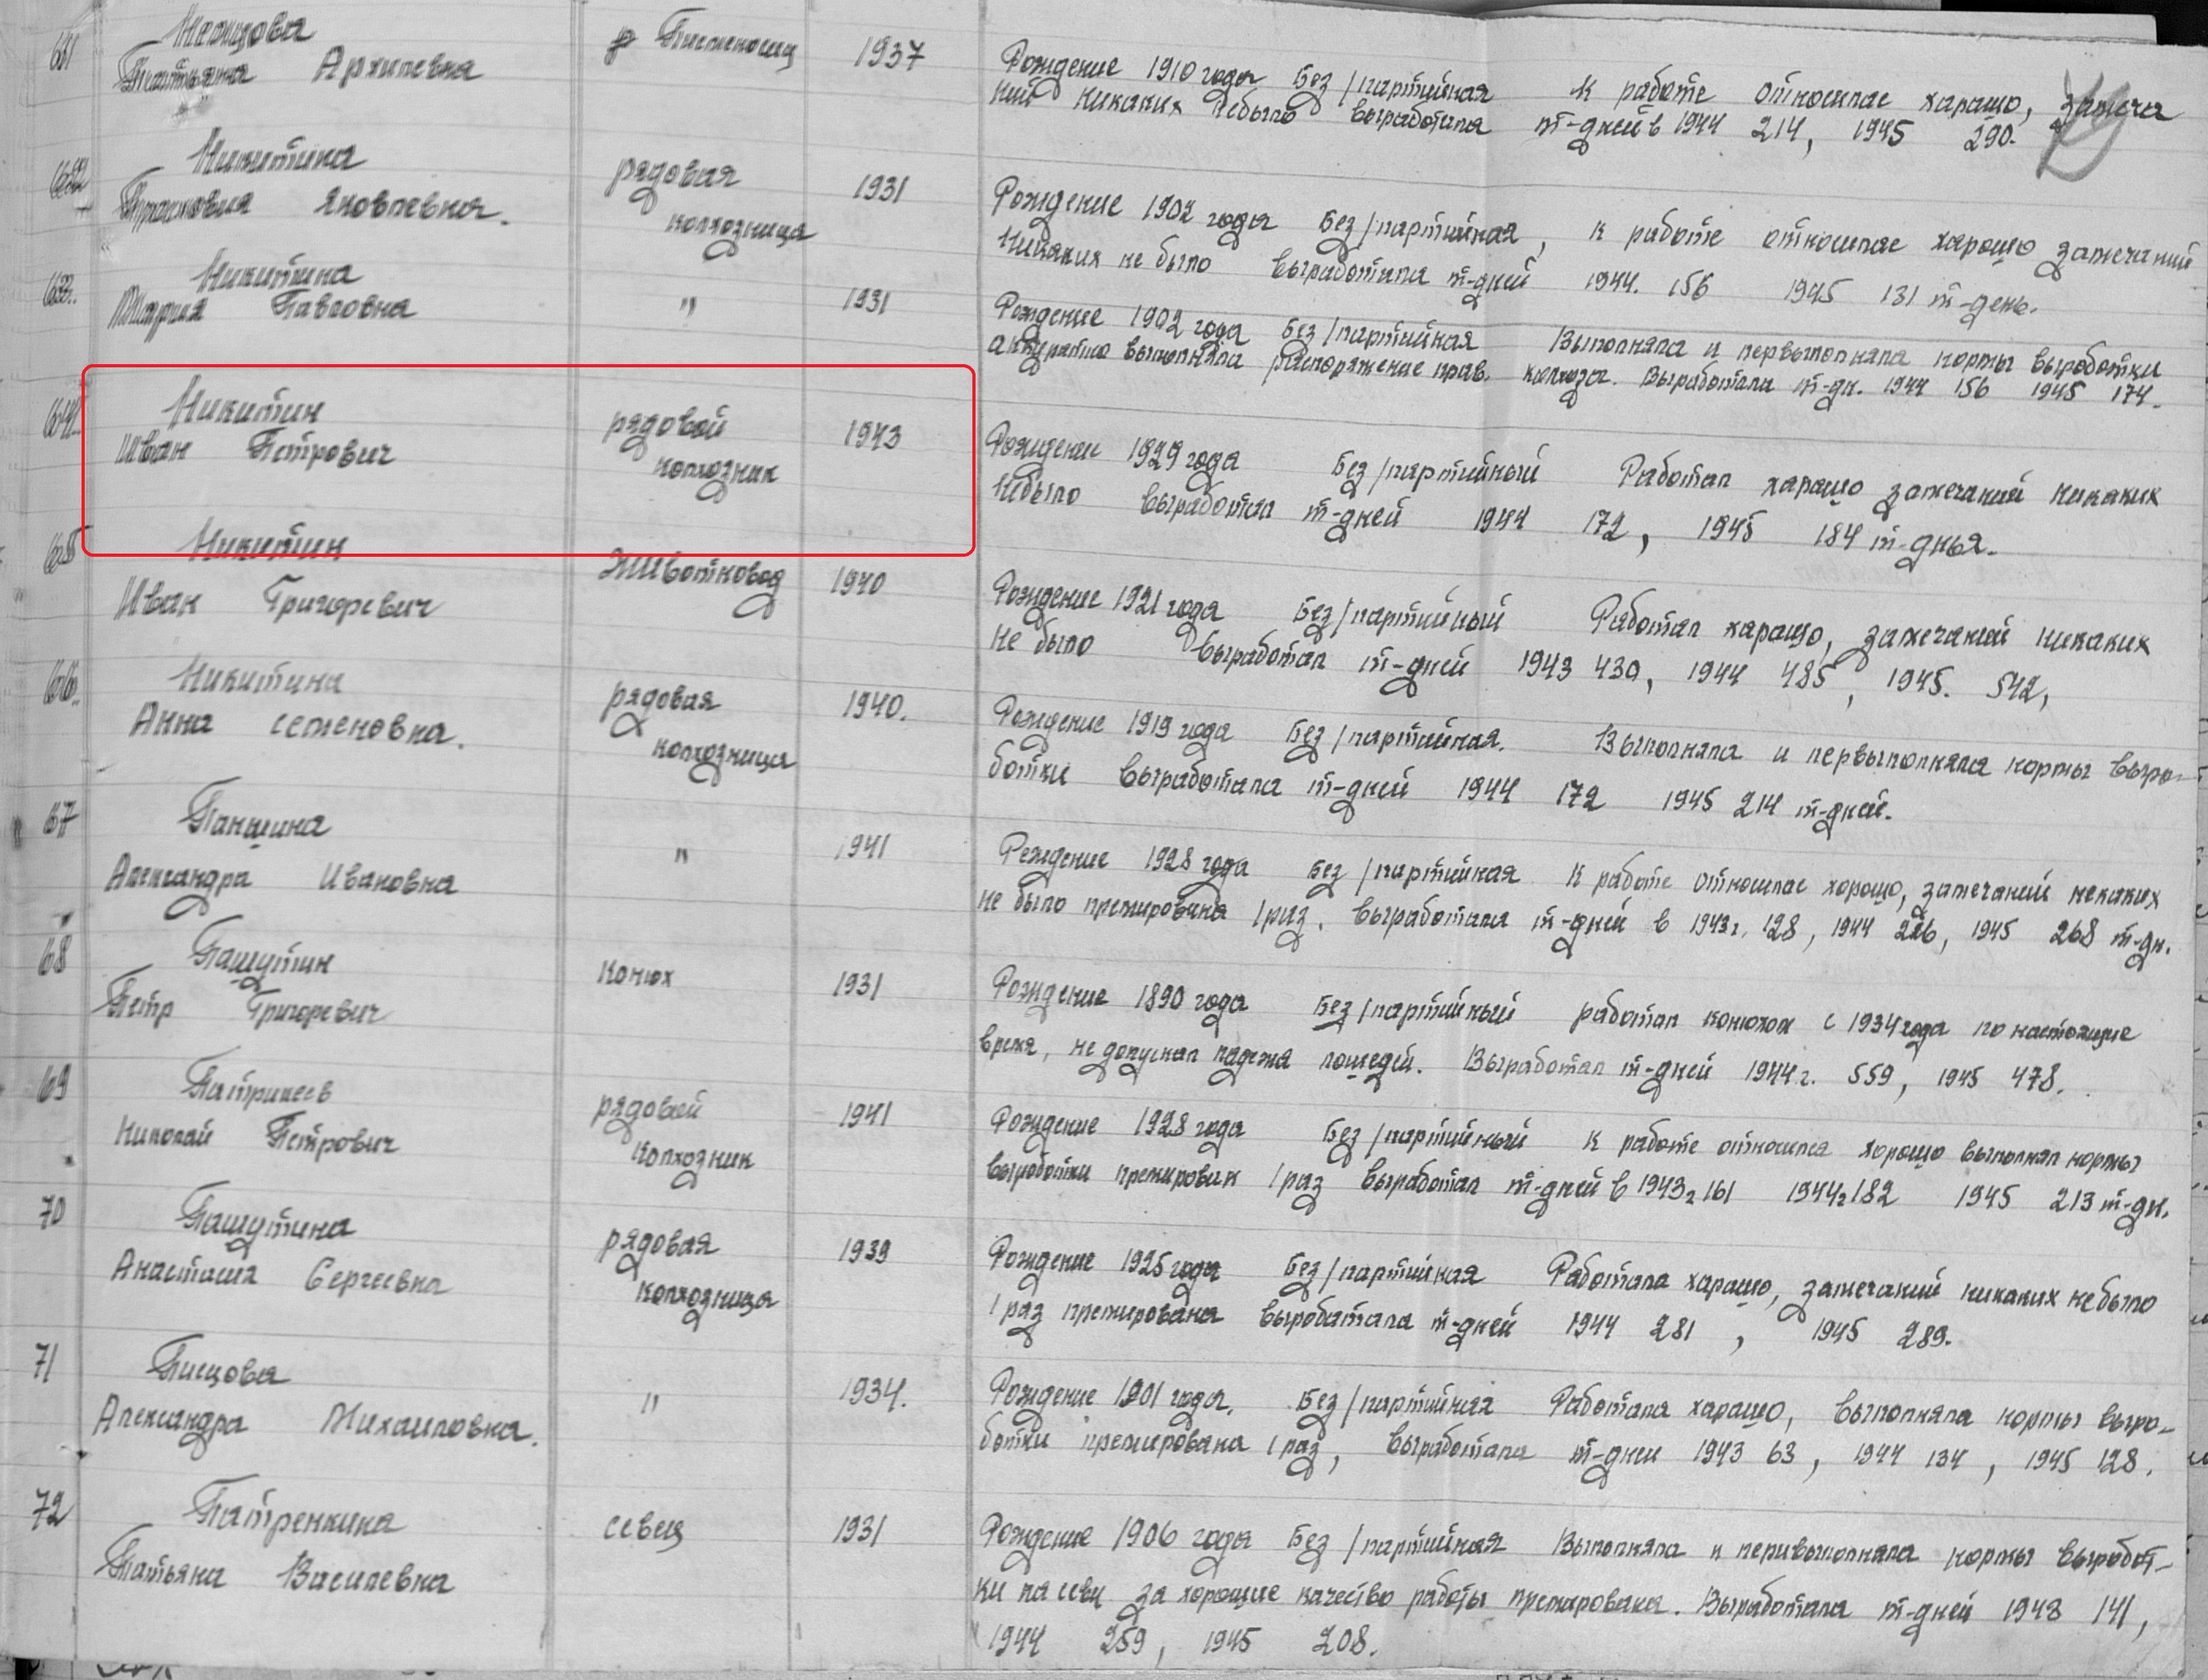 61 Немцова р Письмоносец 1937 Рождение 1910 года Без/партийная К работе относилас харашо, замеча
Татьяна Архипевна ний никаких небыло выработала т-дней в 1944 214, 1945 290.
62 Никитина рядовая 1931 Рождение 1902 года Без/партийная, к работе относилас харошо замечаний
Прасковия Яковлевна. колхозница никаких не было выработала т-дней 1944. 156 1945 131 т-день.
63. Никитина " 1931 Рождение 1902 года Без/партийная Выполняла и первыполняла нормы выроботки
Мария Павловна аккуратно выполняла распоряжение прав. колхоза. Выработала т-дн. 1944 156 1945 174.
64. Никитин рядовой 1943 Рождение 1929 года Без/партийный Работал харашо замечаний никаких
Иван Петрович колхозник небыло выработал т-дней 1944 172, 1945 184 т-днья.
65 Никитин животновод 1940 Рождение 1921 года Без/партийный Работал харашо, замечаний никаких
Иван Григоревич не было выработал т-дней 1943 430, 1944 485, 1945. 542,
66. Никитина рядовая 1940. Рождение 1919 года Без/партийная. Выполняла и первыполняла нормы выро-
Анна Семеновна. колхозница ботки выработала т-дней 1944 172 1945 214 т-дней.
67 Паньшина " 1941 Рождение 1928 года Без/партийная К работе относилас хорошо, замечаний некаких
Александра Ивановна не было премирована 1 раз. выработала т-дней в 1943 г. 128, 1944 226, 1945 268 т-дн.
68 Пашутин конюх 1931 Рождение 1890 года Без/партийный работал конюхом с 1934 года по настоящие
Петр Григоревич время, не допускал падежа лошедей. Выработал т-дней 1944 г. 559, 1945 478.
69 Патрикеев рядовой 1941 Рождение 1928 года Без/партийный к работе относился хорошо выполнял нормы
Николай Петрович колхозник выроботки премирован 1 раз выработал т-дней в 1943 г 161 1944 г 182 1945 213 т-дн.
70 Пашутина рядовая 1939 Рождение 1925 года Без/партийная Работала харашо, замечаний никаких небыло
Анастасия Сергеевна колхозница 1 раз премирована выробатала т-дней 1944 281, 1945 289.
71 Писцова " 1934. Рождение 1901 года. Без/партийная Работала харашо, выполняла нормы выро-
Александра Михаиловна. ботки премирована 1 раз, выработала т-дней 1943 63, 1944 134, 1945 128.
72 Патренкина севец 1931 Рождение 1906 года Без/партийная Выполняла и перивыполняла нормы выработ-
Татьяна Василевна ки на севу за хорошие качество работы премирована. Выработала т-дней 1943 141,
1944 259, 1945 208.